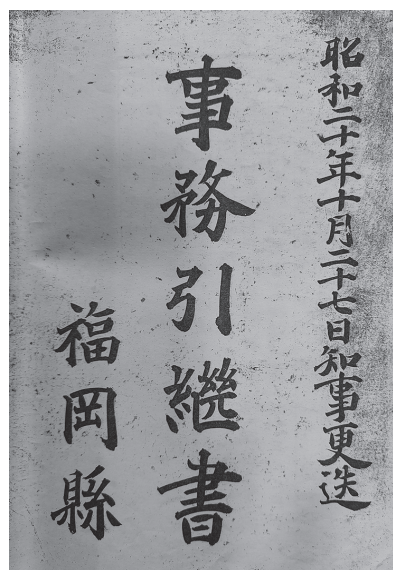 昭和二十年十月二十七日知事更迭
事務引繼書
福岡縣